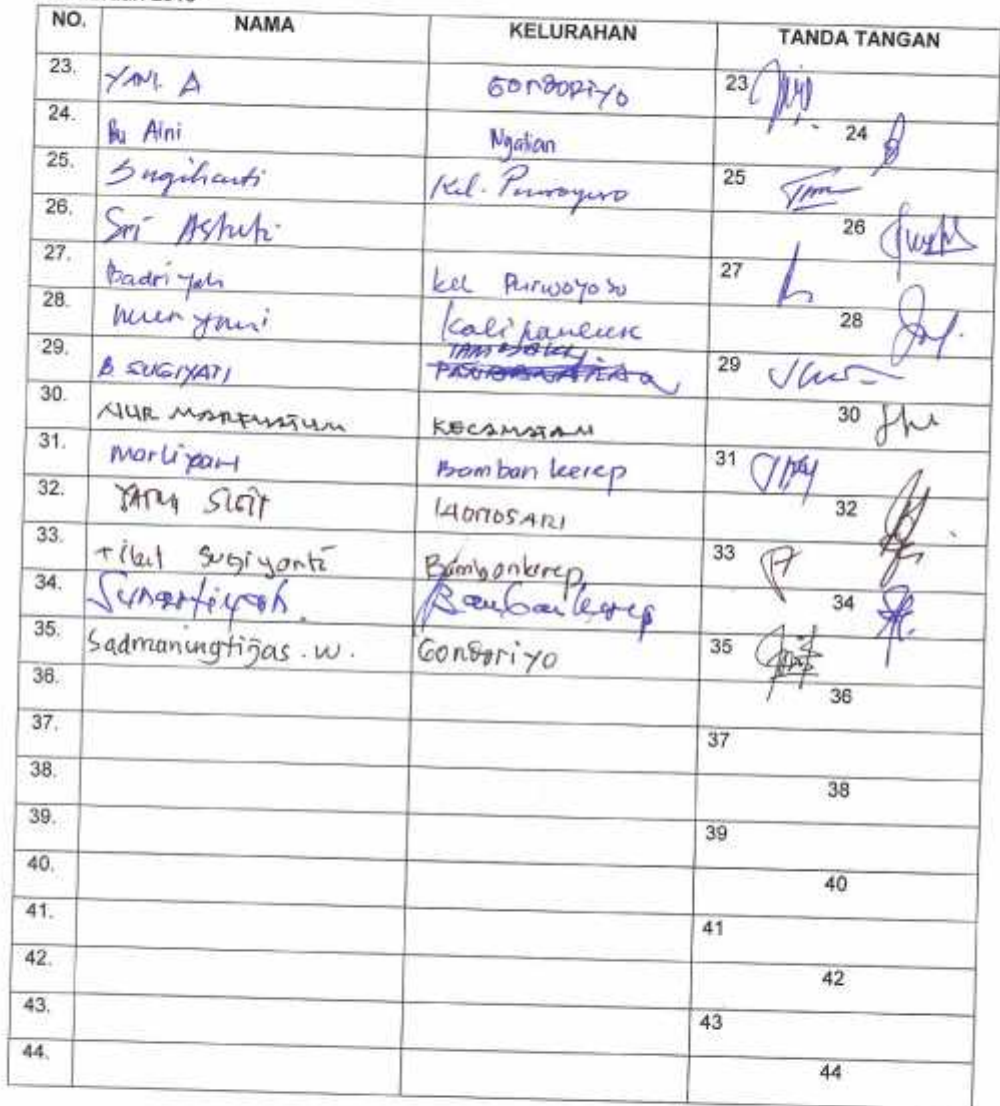 NO. NAMA KELURAHAN TANDA TANGAN
23. YANI. A GONDORIYO 23
24. Bu Aini Ngalian 24
25. Sugiharti Kel. Purwoyoso 25
26. Sri Astuti 26
27. Badriyah kel Purwoyoso 27
28. kalipancur 28
29. B SUGIYATI 29
30. NUR KECAMATAN 30
31. Marliyani Bamban kerep 31
32. WONOSARI 32
33. Sugiyanti Bambankerep 33
34. Bambankerep 34
35. Sadmaningtijas . W. Gondoriyo 35
36. 36
37. 37
38. 38
39. 39
40. 40
41. 41
42. 42
43. 43
44. 44